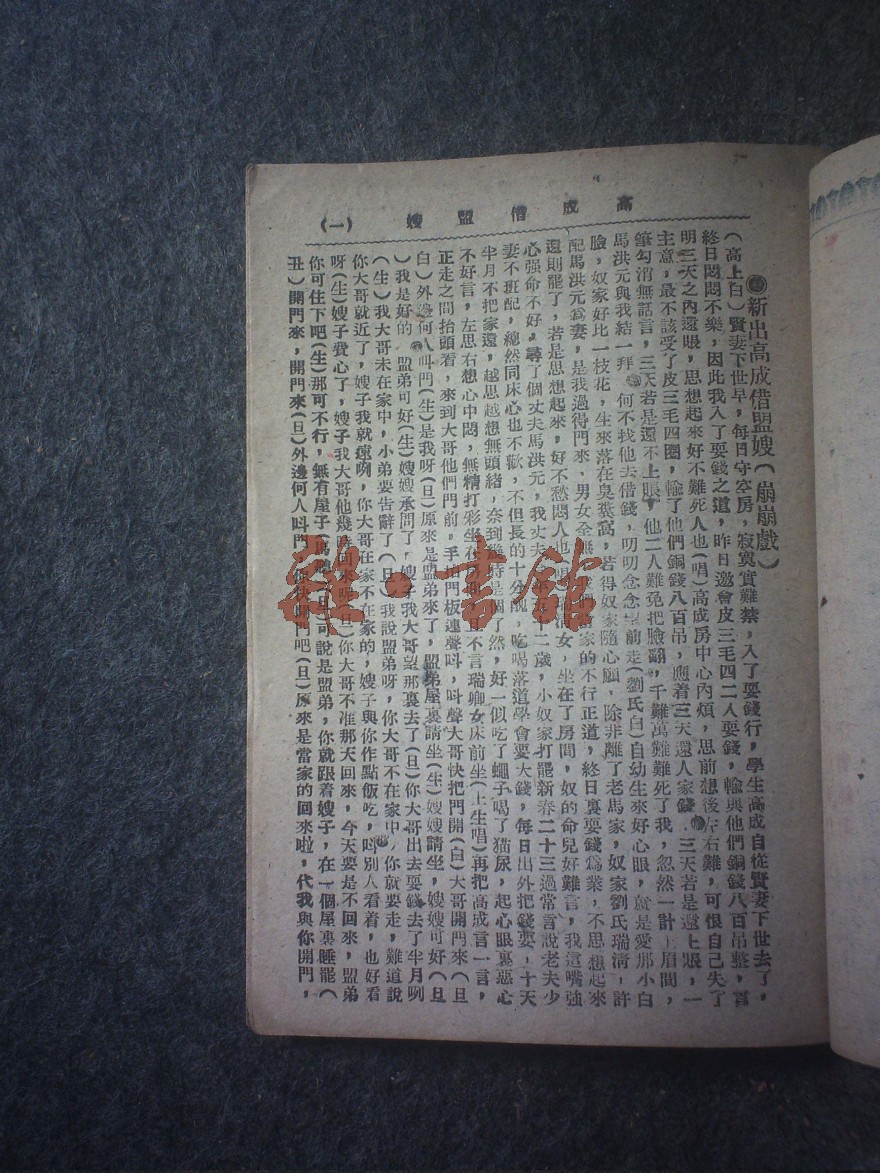 高成借盟嫂 （一）
新出高成借盟嫂（崩崩戲）
（高上白）賢妻下世早，每日守空房，寂寞實難禁，入了耍錢行，學生高成自從賢妻下世去了，
終日悶悶不樂，因此我入了耍錢之道，昨日邀會皮三毛四二人耍錢，輸與他們銅錢八百吊整，言
明三天之內還眼，思想起來好不難死人也（唱）高成房中心內煩，思前想後左右難，可恨自己失了
主意，最不該受了皮三毛四圈，輸了他們銅錢八百吊，應着三天還人家錢，三天若是還上眼，一
筆勾消無話言，三天若是還不上眼，他二人難免把臉翻，千難萬難難死了我，忽然一計上眉間，
馬洪元與我結一拜，何不找他去借錢，叨叨念念望前走（劉氏白）自幼生來好心眼，就是愛那小白
臉，奴家好比一枝花，生來落在臭糞窩，若得奴家隨心願，除非離了老馬家，奴家劉氏瑞清，許
配馬洪元爲妻，是我過得門來，男女全無，家的不行正道，終日裏耍錢爲業，不思想起來
還則罷了，若是思想起來，好不愁悶人也，清女，坐在了房間，奴的命兒好難言，我這嘴強
心强命不好，尋了個丈夫馬洪元，我丈夫二歲，小奴家打罷新春二十三過常言說老夫少
妻不班配，總然同床心也不歡，不但長的十分醜，吃喝落道學會耍大錢，每日出外把錢耍，十天
半月不把家還，越思越想無頭緒，奈到幾時是個了然，好一似吃了蠅子喝了猫尿，起心眼裏惡心
不好言，左思右想心中悶，無精打彩坐在不言瑞卿女床前坐（上生唱）再把高成言一言，
正走之間抬頭看，來到大哥他們門前，手拍門板連聲叫，叫聲大哥快把門開（白）大哥開門來（旦
白）外邊何人叫門（生）是我呀（旦）原來是盟弟來了，盟弟屋裏請坐（生）嫂嫂請坐，嫂嫂可好（旦
）我是好的，盟弟可好（生）嫂嫂承問了，嫂子我大哥望那裏去了（旦）你大哥出去耍錢去了半月咧
（生）我大哥未在家中，小弟要告辭了（旦）我說盟弟呀，你大哥不在家中，你就要走，難道說
你大哥就近了，嫂子我就遠咧，你大哥在家不在家的，嫂子與你作點飯吃，叫別人看着，也好看
呀（生）嫂子費心了，嫂子我大哥他幾時回來呢（旦）你大哥不准那天回來，今天要是不回來，盟弟
你可住下吧（生）那可不行，無有屋子（旦）可說是盟弟，你就跟着嫂子，在一個屋裏睡罷（
丑）開門來，開門來（旦）外邊何人叫門，你快開門吧（旦）原來是當家的回來啦，代我與你開門，
書館